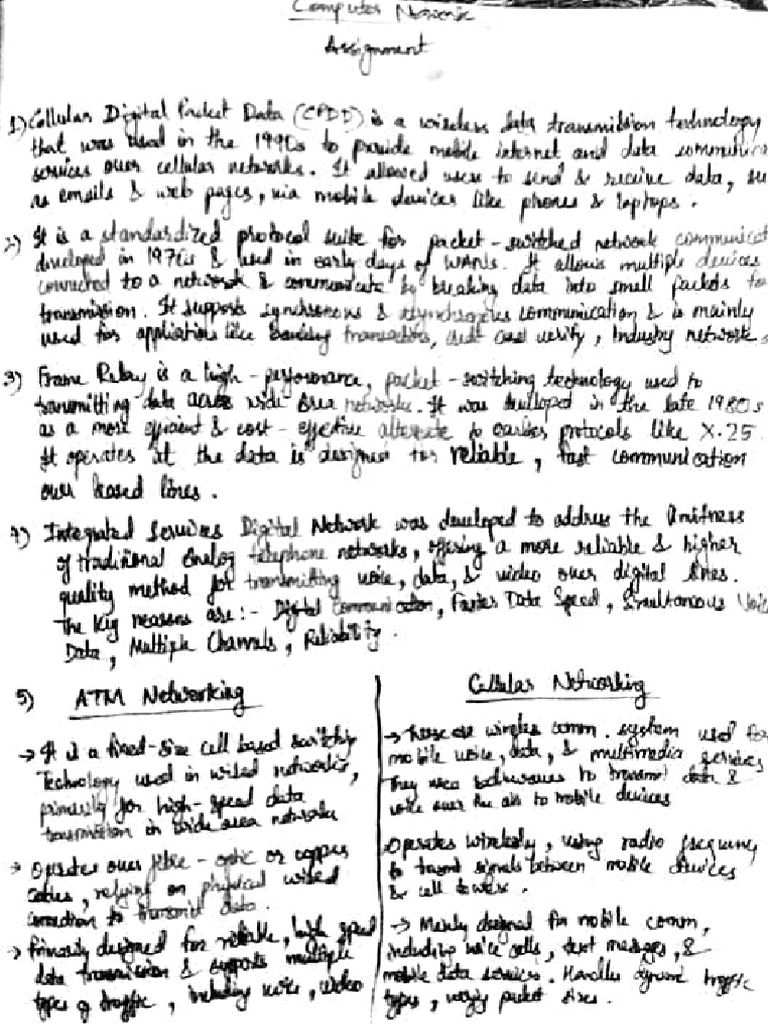 Computer Network
Assignment
1) Cellular Digital Packet Data (CPDD) is a wireless data transmission technology
that was used in the 1990s to provide mobile internet and data communica
services over cellular networks. It allowed users to send & receive data, su
as emails & web pages, via mobile devices like phones & laptops.
2) It is a standardized protocol suite for packet-switched network communicat
developed in 1970s & used in early days of WANs. It allows multiple devices
connected to a network & communicate by breaking data into small packets fo
transmission. It supports synchronous & asynchronous communication & is mainly
used for application like banking transaction, verify, Industry networks
3) Frame Relay is a high-performance, packet-switching technology used to
transmitting data across wide area networks. It was developed in the late 1980s
as a more efficient & cost-effective alternate to earlier protocols like X.25
It operates at the data is designed for reliable, fast communication
over leased lines.
4) Integrated Services Digital Network was developed to address the
of traditional analog telephone networks, offering a more reliable & higher
quality method for transmitting voice, data, & video over digital lines.
The key reasons are:- Digital Communication, Faster Data Speed, Simultaneous Voic
Data, Multiple Channels, Reliability.
5) ATM Networking
→ It is a fixed-size cell based switchin
Technology used in wired networks,
primarily for high-speed data
transmission in wide area networks
→ Operates over fibre-optic or copper
cables, relying on physical wired
connection to transmit data.
→ Primarily designed for reliable, high speed
data transmission & supports multiple
types of traffic, including voice, video
Cellular Networking
→ These are wireless comm. system used for
mobile voice, data, & multimedia services
They use to transmit data &
voice over the air to mobile devices
Operates wirelessly, using radio frequency
to transmit signals between mobile devices
& cell towers.
→ Mainly designed for mobile comm,
including voice calls, text messages, &
mobile data services. Handles dynamic traffic
types, varying packet sizes.